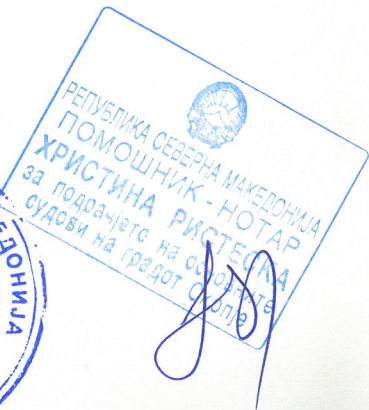 РЕПУБЛИКА СЕВЕРНА МАКЕДОНИЈА
ПОМОШНИК - НОТАР
ХРИСТИНА РИСТЕСКА
за подрачјето на основните
судови на градот Скопје
ЕДОНИЈА